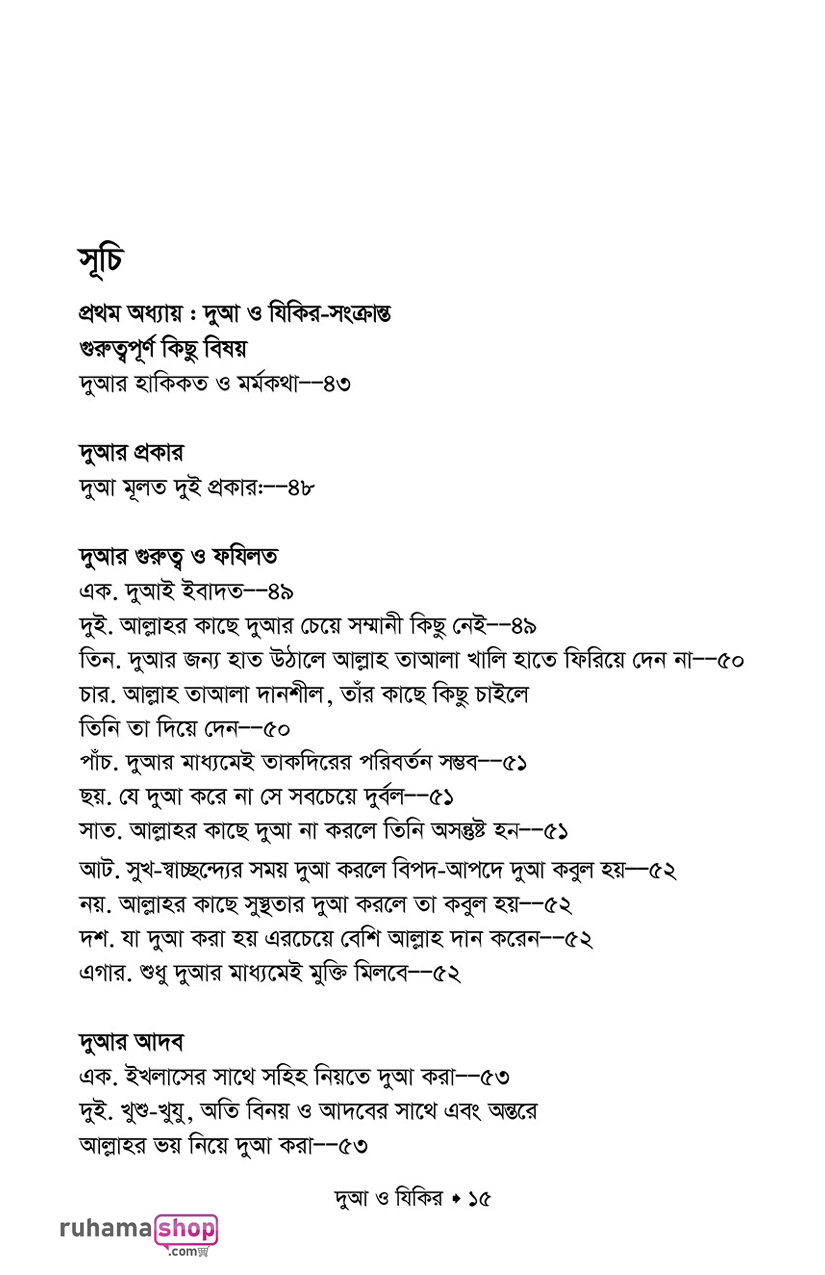 সূচি
প্রথম অধ্যায় : দুআ ও যিকির-সংক্রান্ত
গুরুত্বপূর্ণ কিছু বিষয়
দুআর হাকিকত ও মর্মকথা––৪৩
দুআর প্রকার
দুআ মূলত দুই প্রকারঃ––৪৮
দুআর গুরুত্ব ও ফযিলত
এক. দুআই ইবাদত––৪৯
দুই. আল্লাহর কাছে দুআর চেয়ে সম্মানী কিছু নেই––৪৯
তিন. দুআর জন্য হাত উঠালে আল্লাহ তাআলা খালি হাতে ফিরিয়ে দেন না––৫০
চার. আল্লাহ তাআলা দানশীল, তাঁর কাছে কিছু চাইলে
তিনি তা দিয়ে দেন––৫০
পাঁচ. দুআর মাধ্যমেই তাকদিরের পরিবর্তন সম্ভব––৫১
ছয়. যে দুআ করে না সে সবচেয়ে দুর্বল––৫১
সাত. আল্লাহর কাছে দুআ না করলে তিনি অসন্তুষ্ট হন––৫১
আট. সুখ-স্বাচ্ছন্দ্যের সময় দুআ করলে বিপদ-আপদে দুআ কবুল হয়––৫২
নয়. আল্লাহর কাছে সুস্থতার দুআ করলে তা কবুল হয়––৫২
দশ. যা দুআ করা হয় এরচেয়ে বেশি আল্লাহ দান করেন––৫২
এগার. শুধু দুআর মাধ্যমেই মুক্তি মিলবে––৫২
দুআর আদব
এক. ইখলাসের সাথে সহিহ নিয়তে দুআ করা––৫৩
দুই. খুশু-খুযু, অতি বিনয় ও আদবের সাথে এবং অন্তরে
আল্লাহর ভয় নিয়ে দুআ করা––৫৩
দুআ ও যিকির ➧ ১৫
ruhamashop
.com